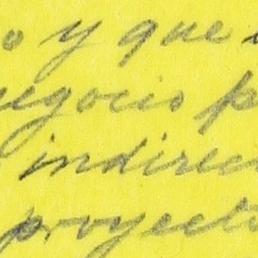 o y que
negocio p
indirec
proyecto